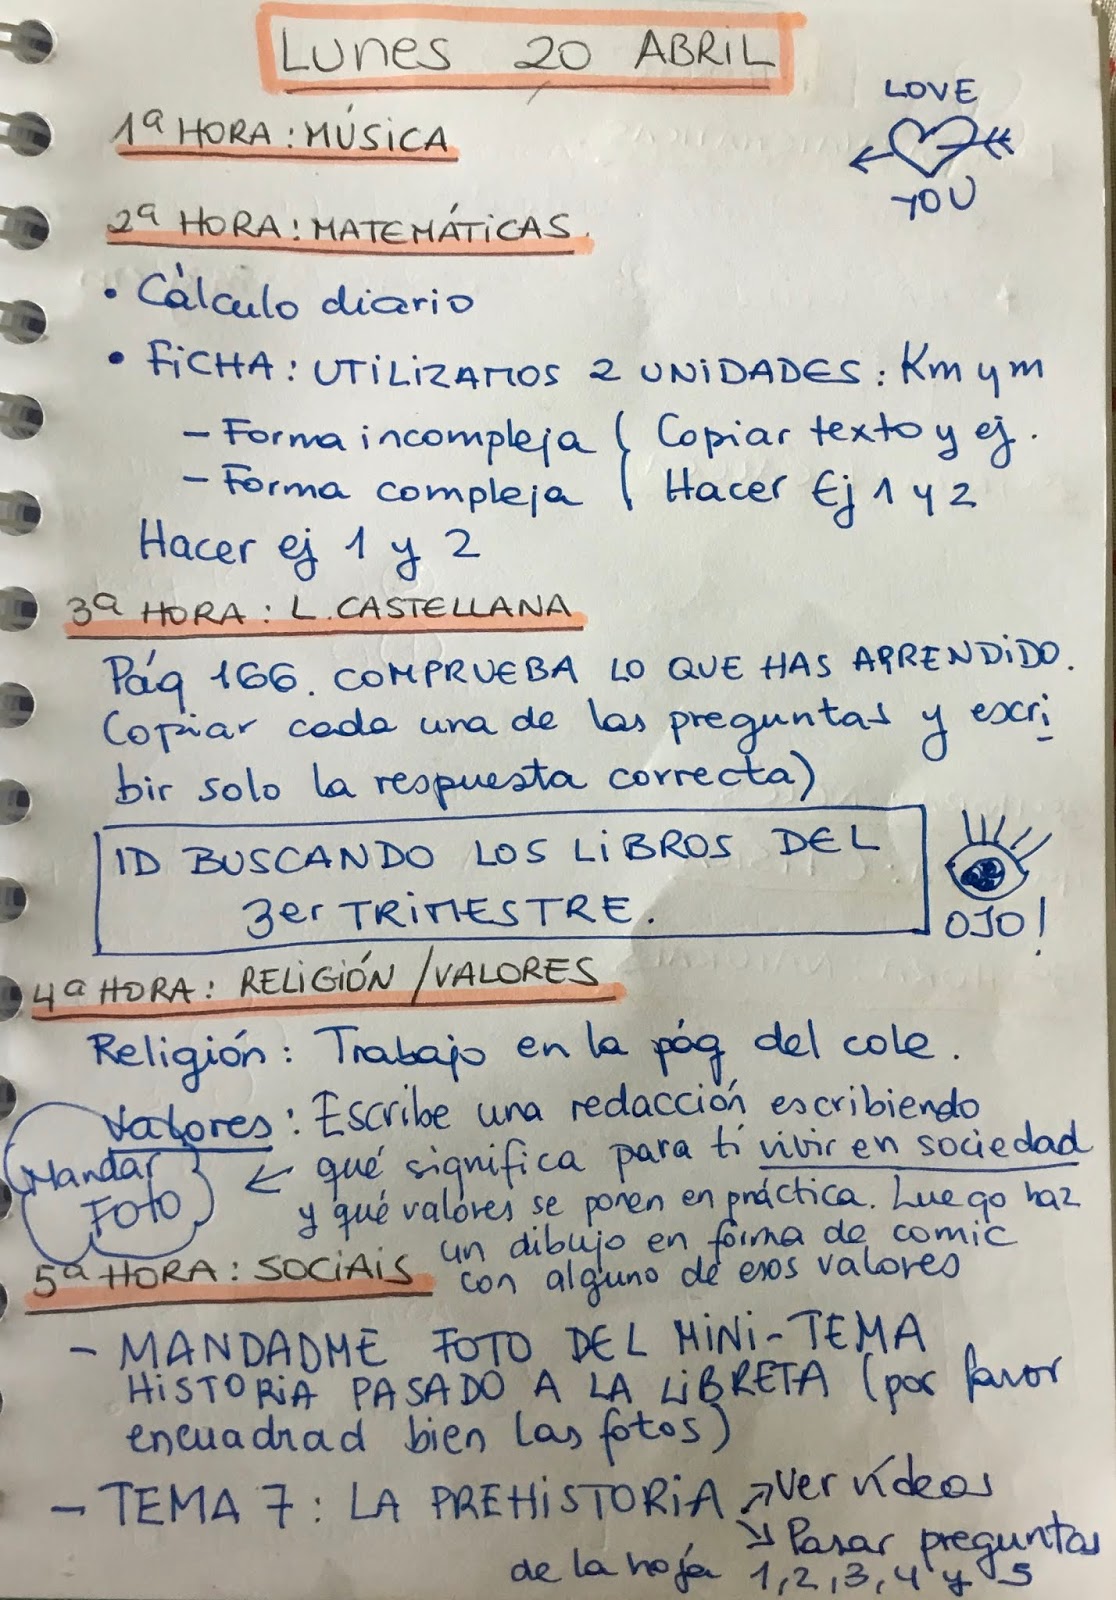 LUNES 20 ABRIL
LOVE
YOU
1ª HORA: MÚSICA
2ª HORA: MATEMÁTICAS.
• Cálculo diario
• FICHA: UTILIZAMOS 2 UNIDADES: Km y m
- Forma incompleja ( Copiar texto y ej.
- Forma compleja ( Hacer Ej 1 y 2
Hacer ej 1 y 2
3ª HORA: L. CASTELLANA
Pág 166. COMPRUEBA LO QUE HAS APRENDIDO.
Copiar cada una de las preguntas y escri
bir solo la respuesta correcta)
ID BUSCANDO LOS LIBROS DEL
3er TRIMESTRE.
OJO!
4ª HORA: RELIGIÓN/VALORES
Religión: Trabajo en la pág del cole.
Valores: Escribe una redacción escribiendo
qué significa para ti vivir en sociedad
y qué valores se ponen en práctica. Luego haz
un dibujo en forma de comic
con alguno de esos valores
Mandar
FOTO
5ª HORA: SOCIAIS
- MANDADME FOTO DEL MINI-TEMA
HISTORIA PASADO A LA LIBRETA (por favor
encuadrad bien las fotos)
- TEMA 7: LA PREHISTORIA ↗ Ver vídeos
↘ Pasar preguntas
de la hoja 1, 2, 3, 4 y 5